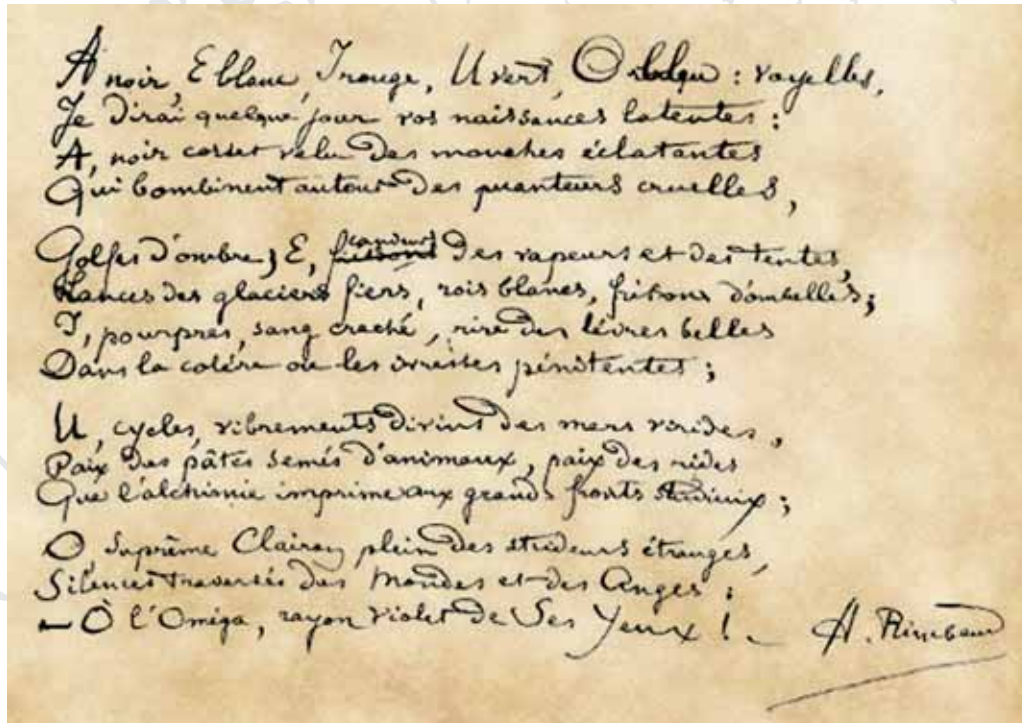 A noir, E blanc, I rouge, U vert, O bleu : voyelles,
Je dirai quelque jour vos naissances latentes :
A, noir corset velu des mouches éclatantes
Qui bombinent autour des puanteurs cruelles,
Golfes d'ombre ; E, frissons candeurs des vapeurs et des tentes,
Lances des glaciers fiers, rois blancs, frissons d'ombelles ;
I, pourpres, sang craché, rire des lèvres belles
Dans la colère ou les ivresses pénitentes ;
U, cycles, vibrements divins des mers virides,
Paix des pâtis semés d'animaux, paix des rides
Que l'alchimie imprime aux grands fronts studieux ;
O, Suprême Clairon plein des strideurs étranges,
Silences traversés des Mondes et des Anges :
– Ô l'Oméga, rayon violet de Ses Yeux ! –
A. Rimbaud